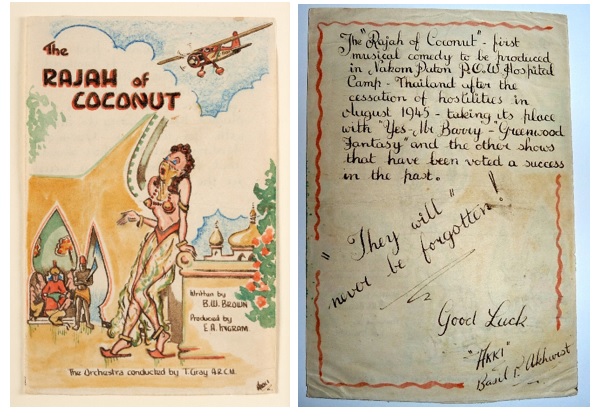 The
RAJAH of
COCONUT
Written by
B.W. BROWN
Produced by
E.A. INGRAM
The Orchestra conducted by T. Gray A.R.C.M.
The "Rajah of Coconut" - first
musical comedy to be produced
in Nakom Paton P.O.W. Hospital
Camp - Thailand after the
cessation of hostilities in
August 1945 - taking its place
with "Yes Mr Barry - "Greenwood
Fantasy" and the other shows
that have been voted a success
in the past.
"They will"
never be forgotten!
Good Luck
"AKKI"
Basil Akhurst